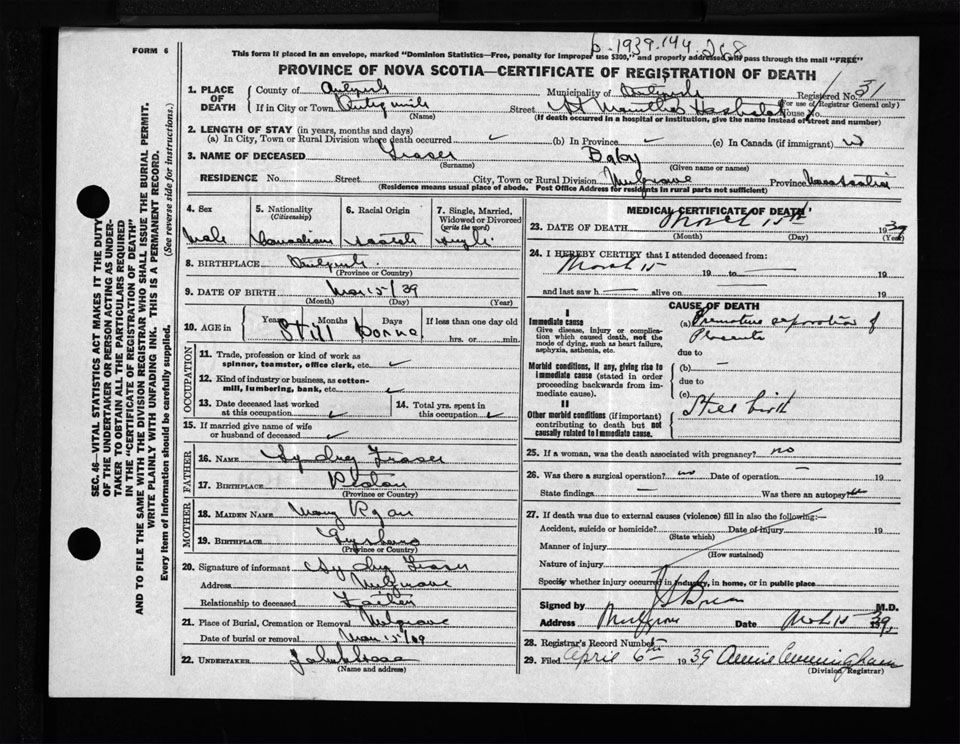 FORM 6
6-1939.144.268
This form if placed in an envelope, marked "Dominion Statistics—Free, penalty for improper use $300," and properly addressed will pass through the mail "FREE"
PROVINCE OF NOVA SCOTIA—CERTIFICATE OF REGISTRATION OF DEATH
1. PLACE OF DEATH
County of
Municipality of
Registered No. 31
(For use of Registrar General only)
If in City or Town
(Name)
Street St Martha's Hospital House No.
(If death occurred in a hospital or institution, give the name instead of street and number)
2. LENGTH OF STAY (in years, months and days)
(a) In City, Town or Rural Division where death occurred ✓ (b) In Province ✓ (c) In Canada (if immigrant)
3. NAME OF DECEASED Fraser Baby
(Surname) (Given name or names)
RESIDENCE No. Street City, Town or Rural Division Mulgrave Province Nova Scotia
(Residence means usual place of abode. Post Office Address for residents in rural parts not sufficient)
4. Sex
Male
5. Nationality (Citizenship)
Canadian
6. Racial Origin
Scotch
7. Single, Married, Widowed or Divorced (write the word)
Single
8. BIRTHPLACE
(Province or Country)
9. DATE OF BIRTH Mar 15/39
(Month) (Day) (Year)
10. AGE in Years Months Days If less than one day old
Still Borne
hrs. or min.
OCCUPATION
11. Trade, profession or kind of work as spinner, teamster, office clerk, etc. ✓
12. Kind of industry or business, as cotton-mill, lumbering, bank, etc. ✓
13. Date deceased last worked at this occupation ✓
14. Total yrs. spent in this occupation ✓
15. If married give name of wife or husband of deceased ✓
FATHER
16. NAME Sydney Fraser
17. BIRTHPLACE
(Province or Country)
MOTHER
18. MAIDEN NAME Mary Ryan
19. BIRTHPLACE
(Province or Country)
20. Signature of informant Sydney Fraser
Address Mulgrave
Relationship to deceased Father
21. Place of Burial, Cremation or Removal Mulgrave
Date of burial or removal Mar 15/39
22. UNDERTAKER
(Name and address)
MEDICAL CERTIFICATE OF DEATH
23. DATE OF DEATH March 15th 1939
(Month) (Day) (Year)
24. I HEREBY CERTIFY that I attended deceased from:
March 15 19 to — 19
and last saw h — alive on — 19
CAUSE OF DEATH
I
Immediate cause
Give disease, injury or complication which caused death, not the mode of dying, such as heart failure, asphyxia, asthenia, etc.
(a) Premature separation of Placenta
due to
Morbid conditions, if any, giving rise to immediate cause (stated in order proceeding backwards from immediate cause).
(b) —
due to
(c)
II
Other morbid conditions (if important) contributing to death but not causally related to immediate cause.
Still birth
25. If a woman, was the death associated with pregnancy? no
26. Was there a surgical operation? no Date of operation — 19
State findings — Was there an autopsy
27. If death was due to external causes (violence) fill in also the following:—
Accident, suicide or homicide? Date of injury 19
(State which)
Manner of injury
(How sustained)
Nature of injury
Specify whether injury occurred in industry, in home, or in public place
Signed by M.D.
Address Mulgrave Date 39
28. Registrar's Record Number
29. Filed April 6th 1939 Annie Cunningham
(Division Registrar)
SEC. 46—VITAL STATISTICS ACT MAKES IT THE DUTY
OF THE UNDERTAKER OR PERSON ACTING AS UNDER-
TAKER TO OBTAIN ALL THE PARTICULARS REQUIRED
IN THE "CERTIFICATE OF REGISTRATION OF DEATH"
AND TO FILE THE SAME WITH THE DIVISION REGISTRAR WHO SHALL ISSUE THE BURIAL PERMIT.
WRITE PLAINLY WITH UNFADING INK. THIS IS A PERMANENT RECORD.
Every item of information should be carefully supplied. (See reverse side for instructions.)